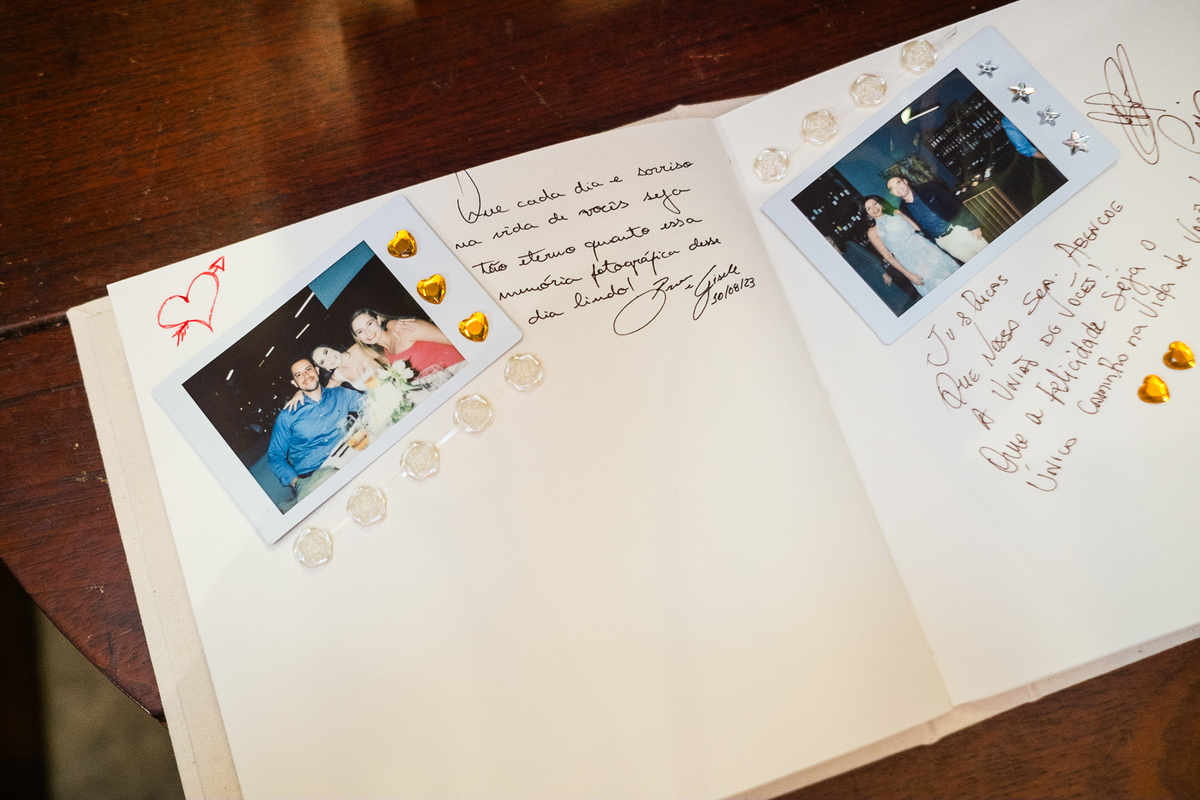 Que cada dia e sorriso
na vida de vocês seja
tão eterno quanto essa
memória fotográfica desse
dia lindo!
e Gisele
30/08/23
Ju & Lucas
Que Nosso Senhor ABENÇOE
A UNIÃO DE VOCÊS!
Que a felicidade seja o
ÚNICO CAMINHO NA VIDA DE